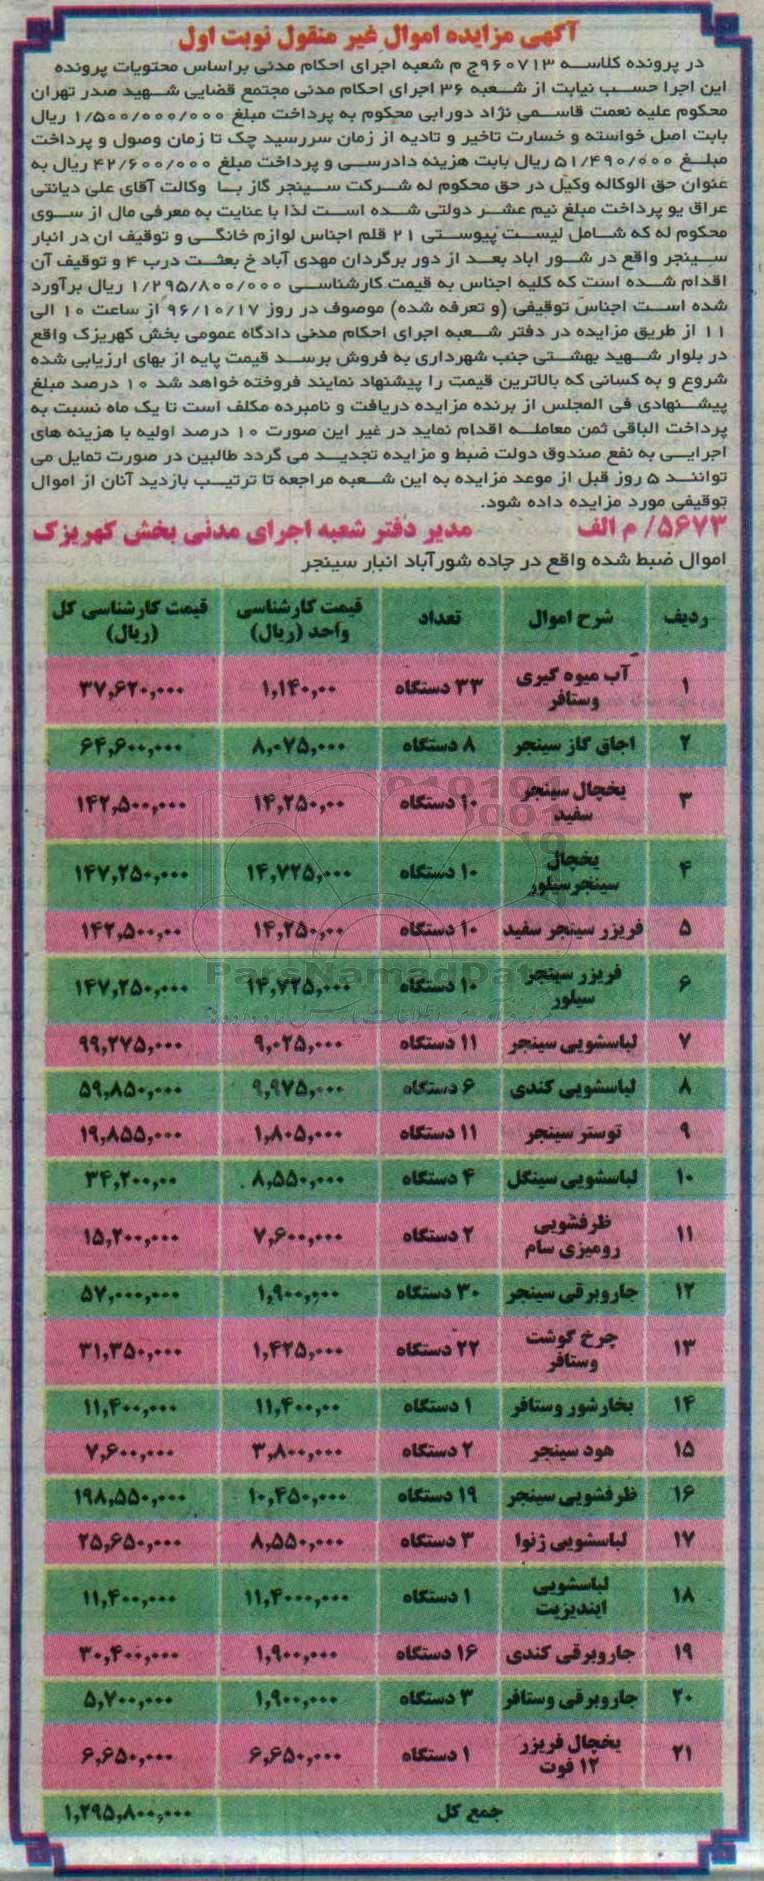 آگهی مزایده اموال غیر منقول نوبت اول
در پرونده کلاسه ۹۶۰۷۱۳ج م شعبه اجرای احکام مدنی براساس محتویات پرونده
این اجرا حسب نیابت از شعبه ۳۶ اجرای احکام مدنی مجتمع قضایی شهید صدر تهران
محکوم علیه نعمت قاسمی نژاد دورابی محکوم به پرداخت مبلغ ۱/۵۰۰/۰۰۰/۰۰۰ ریال
بابت اصل خواسته و خسارت تاخیر و تادیه از زمان سررسید چک تا زمان وصول و پرداخت
مبلغ ۵۱/۴۹۰/۰۰۰ ریال بابت هزینه دادرسی و پرداخت مبلغ ۴۲/۶۰۰/۰۰۰ ریال به
عنوان حق الوکاله وکیل در حق محکوم له شرکت سینجر گاز با وکالت آقای علی دیانتی
عراق یو پرداخت مبلغ نیم عشر دولتی شده است لذا با عنایت به معرفی مال از سوی
محکوم له که شامل لیست پیوستی ۲۱ قلم اجناس لوازم خانگی و توقیف ان در انبار
سینجر واقع در شور اباد بعد از دور برگردان مهدی آباد خ بعثت درب ۴ و توقیف آن
اقدام شده است که کلیه اجناس به قیمت کارشناسی ۱/۲۹۵/۸۰۰/۰۰۰ ریال برآورد
شده است اجناس توقیفی (و تعرفه شده) موصوف در روز ۹۶/۱۰/۱۷ از ساعت ۱۰ الی
۱۱ از طریق مزایده در دفتر شعبه اجرای احکام مدنی دادگاه عمومی بخش کهریزک واقع
در بلوار شهید بهشتی جنب شهرداری به فروش برسد قیمت پایه از بهای ارزیابی شده
شروع و به کسانی که بالاترین قیمت را پیشنهاد نمایند فروخته خواهد شد ۱۰ درصد مبلغ
پیشنهادی فی المجلس از برنده مزایده دریافت و نامبرده مکلف است تا یک ماه نسبت به
پرداخت الباقی ثمن معامله اقدام نماید در غیر این صورت ۱۰ درصد اولیه با هزینه های
اجرایی به نفع صندوق دولت ضبط و مزایده تجدید می گردد طالبین در صورت تمایل می
توانند ۵ روز قبل از موعد مزایده به این شعبه مراجعه تا ترتیب بازدید آنان از اموال
توقیفی مورد مزایده داده شود.
۵۶۷۳/ م الف مدیر دفتر شعبه اجرای مدنی بخش کهریزک
اموال ضبط شده واقع در جاده شورآباد انبار سینجر
ردیف شرح اموال تعداد قیمت کارشناسی واحد (ریال) قیمت کارشناسی کل (ریال)
۱ آب میوه گیری وستافر ۳۳ دستگاه ۱,۱۴۰,۰۰ ۳۷,۶۲۰,۰۰۰
۲ اجاق گاز سینجر ۸ دستگاه ۸,۰۷۵,۰۰۰ ۶۴,۶۰۰,۰۰۰
۳ یخچال سینجر سفید ۱۰ دستگاه ۱۴,۲۵۰,۰۰ ۱۴۲,۵۰۰,۰۰۰
۴ یخچال سینجرسیلور ۱۰ دستگاه ۱۴,۷۲۵,۰۰۰ ۱۴۷,۲۵۰,۰۰۰
۵ فریزر سینجر سفید ۱۰ دستگاه ۱۴,۲۵۰,۰۰ ۱۴۲,۵۰۰,۰۰
۶ فریزر سینجر سیلور ۱۰ دستگاه ۱۴,۷۲۵,۰۰۰ ۱۴۷,۲۵۰,۰۰۰
ParsNamadData
۷ لباسشویی سینجر ۱۱ دستگاه ۹,۰۲۵,۰۰۰ ۹۹,۲۷۵,۰۰۰
۸ لباسشویی کندی ۶ دستگاه ۹,۹۷۵,۰۰۰ ۵۹,۸۵۰,۰۰۰
۹ توستر سینجر ۱۱ دستگاه ۱,۸۰۵,۰۰۰ ۱۹,۸۵۵,۰۰۰
۱۰ لباسشویی سینگل ۴ دستگاه ۸,۵۵۰,۰۰۰ ۳۴,۲۰۰,۰۰
۱۱ ظرفشویی رومیزی سام ۲ دستگاه ۷,۶۰۰,۰۰۰ ۱۵,۲۰۰,۰۰۰
۱۲ جاروبرقی سینجر ۳۰ دستگاه ۱,۹۰۰,۰۰۰ ۵۷,۰۰۰,۰۰۰
۱۳ چرخ گوشت وستافر ۲۲ دستگاه ۱,۴۲۵,۰۰۰ ۳۱,۳۵۰,۰۰۰
۱۴ بخارشور وستافر ۱ دستگاه ۱۱,۴۰۰,۰۰ ۱۱,۴۰۰,۰۰۰
۱۵ هود سینجر ۲ دستگاه ۳,۸۰۰,۰۰۰ ۷,۶۰۰,۰۰۰
۱۶ ظرفشویی سینجر ۱۹ دستگاه ۱۰,۴۵۰,۰۰۰ ۱۹۸,۵۵۰,۰۰۰
۱۷ لباسشویی ژنوا ۳ دستگاه ۸,۵۵۰,۰۰۰ ۲۵,۶۵۰,۰۰۰
۱۸ لباسشویی ایندیزیت ۱ دستگاه ۱۱,۴۰۰۰,۰۰۰ ۱۱,۴۰۰,۰۰۰
۱۹ جاروبرقی کندی ۱۶ دستگاه ۱,۹۰۰,۰۰۰ ۳۰,۴۰۰,۰۰۰
۲۰ جاروبرقی وستافر ۳ دستگاه ۱,۹۰۰,۰۰۰ ۵,۷۰۰,۰۰۰
۲۱ یخچال فریزر ۱۲ فوت ۱ دستگاه ۶,۶۵۰,۰۰۰ ۶,۶۵۰,۰۰۰
جمع کل ۱,۲۹۵,۸۰۰,۰۰۰